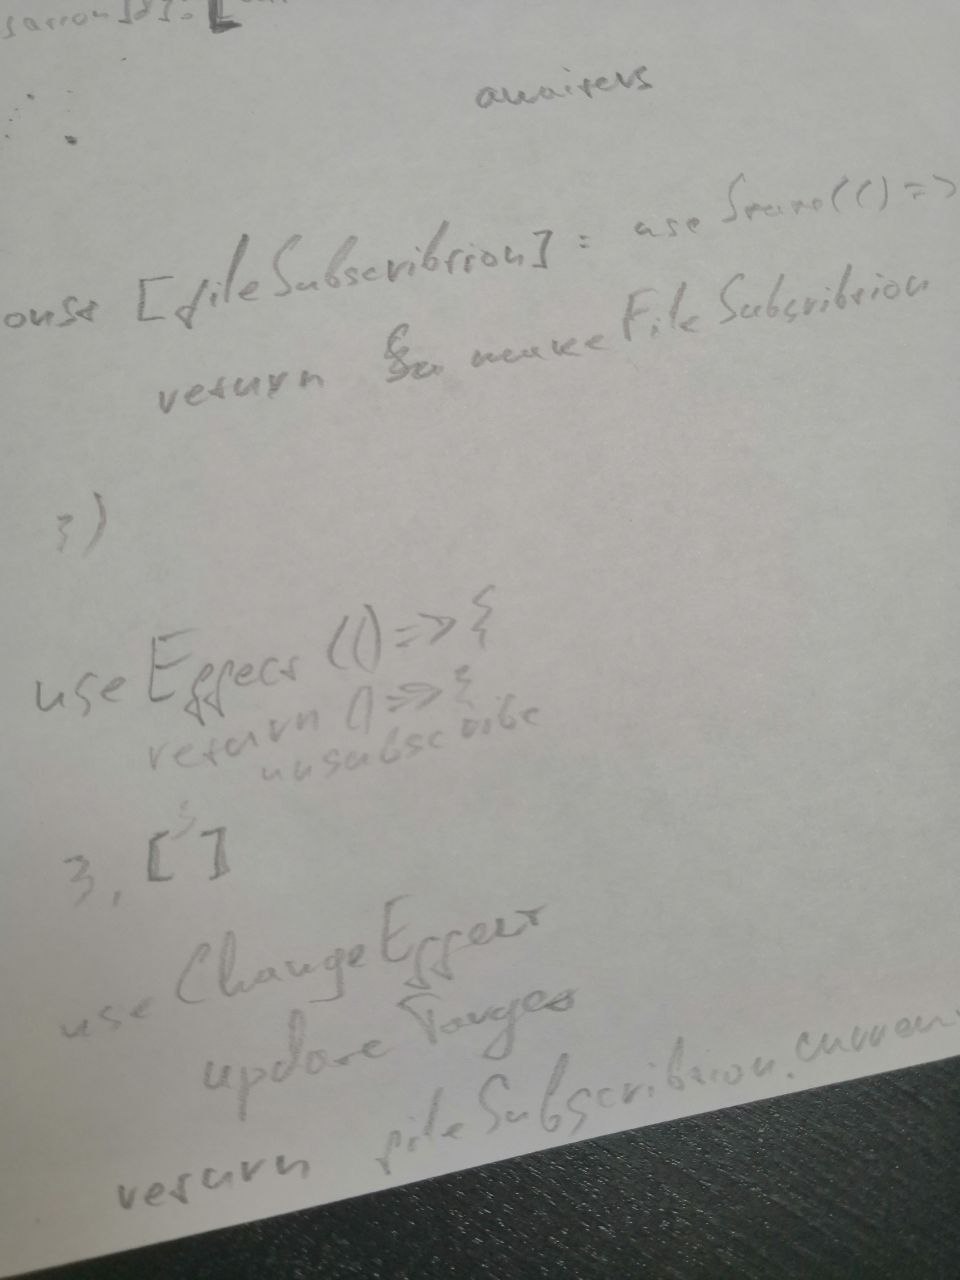 awaiters
onst [fileSubscribtion] = useState(() =>
return makeFileSubscribtion
})
useEffect (() => {
return () => {
unsubscribe
}
}, []
useChangeEffect
updateTarget
return fileSubscribtion.curren